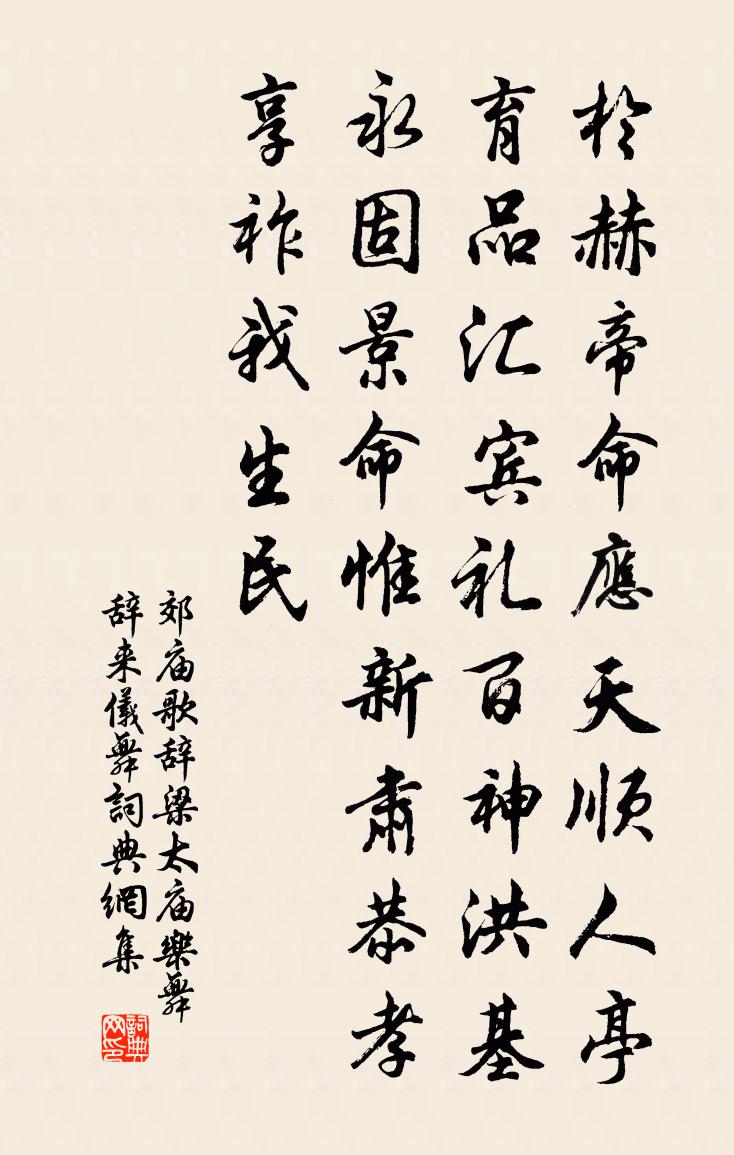 於赫帝命應天顺人亭
育品汇宾礼百神洪基
永固景命惟新肃恭孝
享祚我生民
郊庙歌辞梁太庙樂舞
辞来儀舞詞典網集
詞典网印